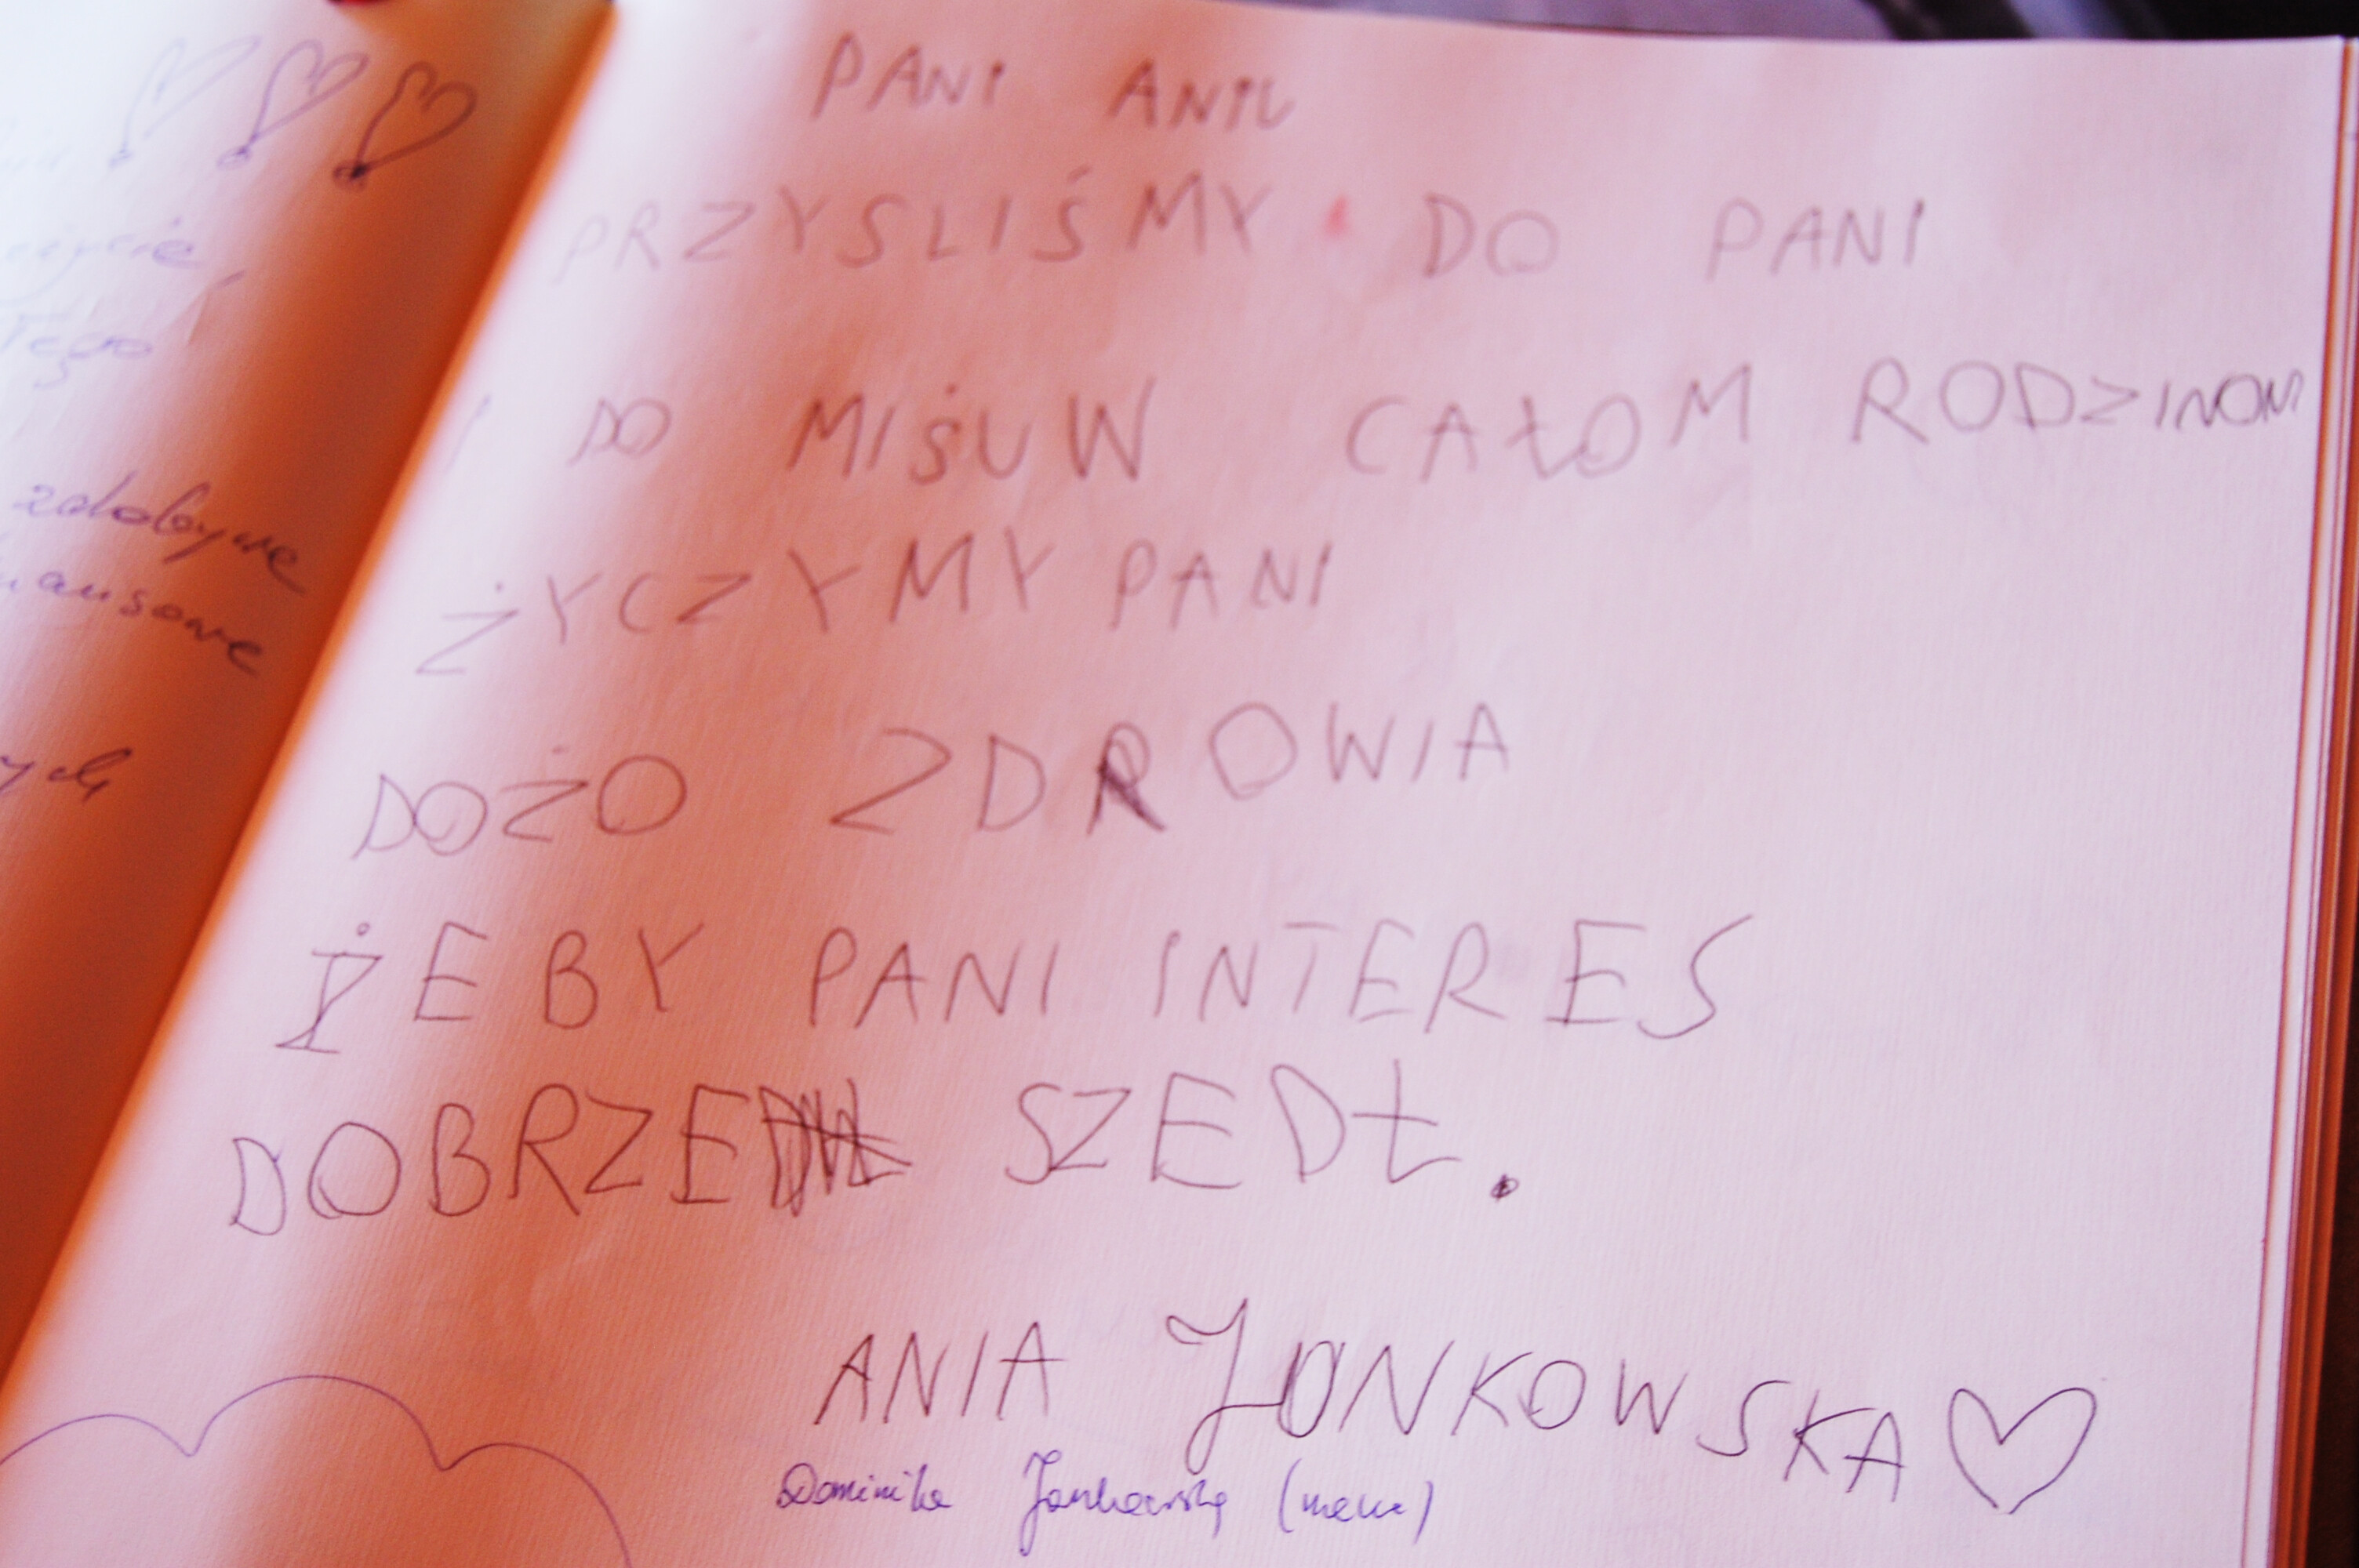 czycie,
Tego
zdobywe
ych
PANI ANIU
PRZYSLIŚMY DO PANI
I DO MIŚUW CAŁOM RODZINOM
ŻYCZYMY PANI
DOŻO ZDROWIA
ŻEBY PANI INTERES
DOBRZE SZEDŁ.
ANIA JONKOWSKA
Dominika Jankowska (mama)